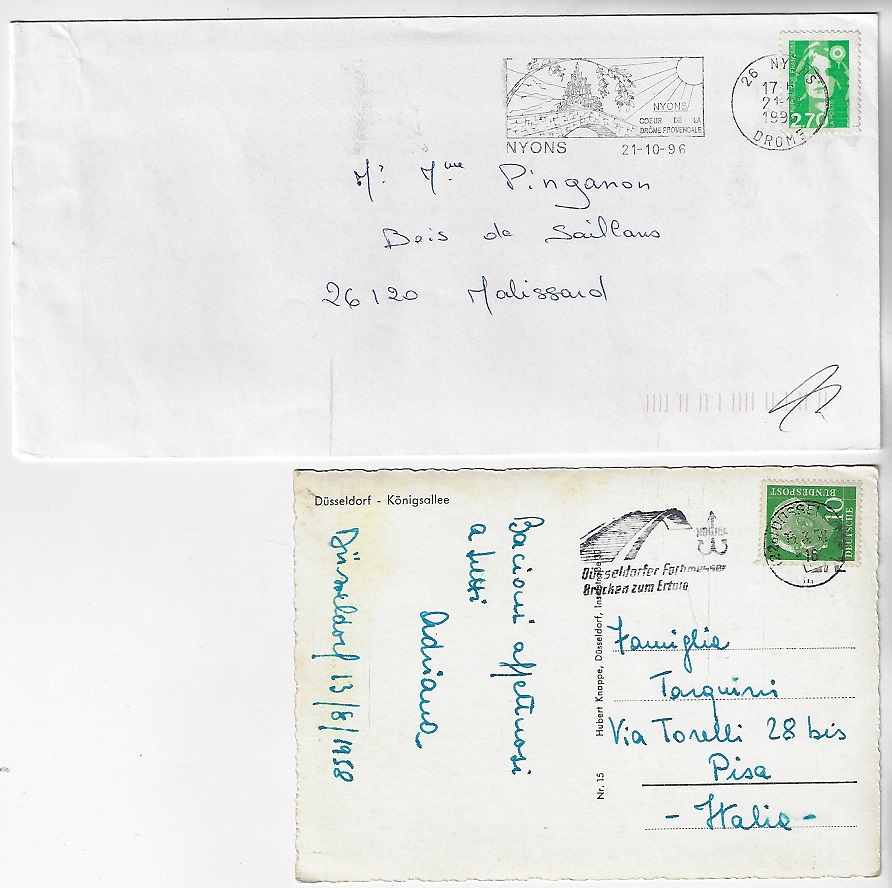 NYONS
COEUR DE LA
DRÔME PROVENCALE
NYONS 21-10-96
26 NYONS
17 H
21-
199
DROME
2,70
Mr Mme Pinganon
Bois de Saillans
26120 Malissard
Düsseldorf - Königsallee
Düsseldorf 13/8/1958
Bacioni affettuosi
a tutti
Adriana
Nr. 15 Hubert Knappe, Düsseldorf,
Düsseldorfer Fachmessen
Brücken zum Erfolg
DEUTSCHE
BUNDESPOST
10
Famiglia
Tarquini
Via Torelli 28 bis
Pisa
- Italia -